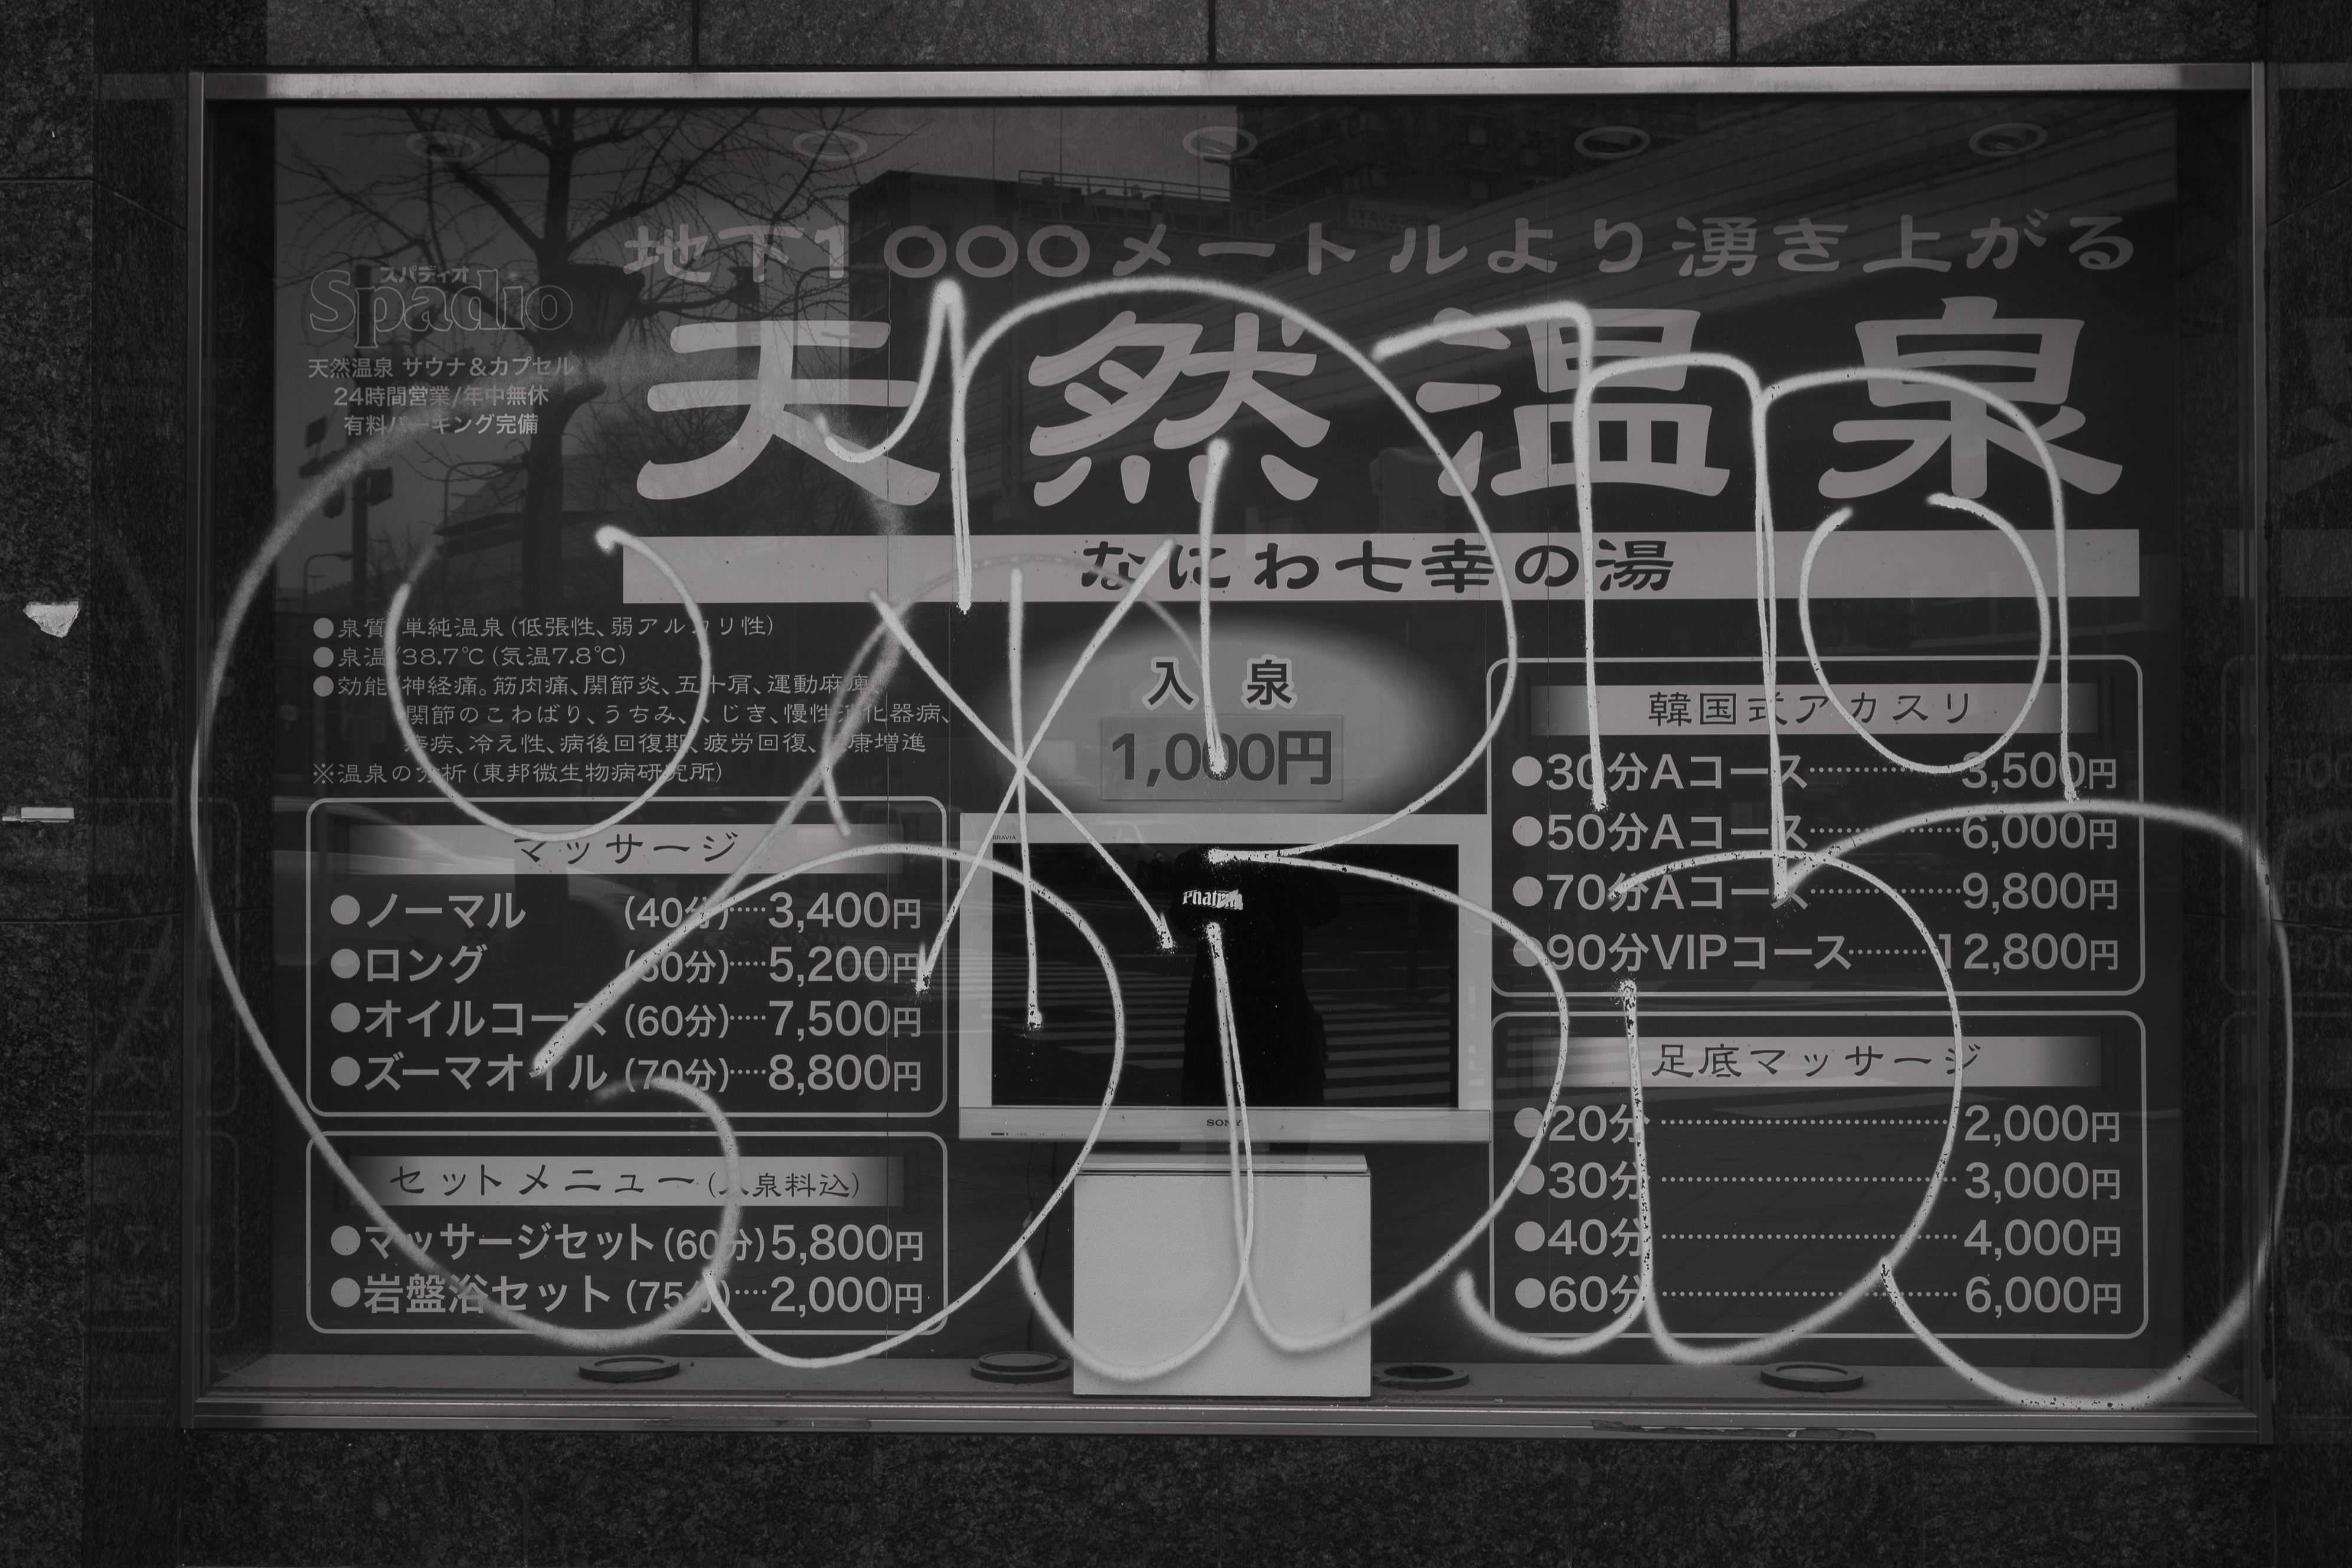 地下1000メートルより湧き上がる
スパディオ
Spadio
天然温泉 サウナ&カプセル
24時間営業/年中無休
有料パーキング完備
天然温泉
なにわ七幸の湯
●泉質/単純温泉(低張性、弱アルカリ性)
●泉温/38.7℃(気温7.8℃)
●効能/神経痛。筋肉痛、関節炎、五十肩、運動麻痺、
関節のこわばり、うちみ、くじき、慢性消化器病、
痔疾、冷え性、病後回復期、疲労回復、健康増進
※温泉の分析(東邦微生物病研究所)
マッサージ
●ノーマル (40分)····3,400円
●ロング (60分)····5,200円
●オイルコース (60分)····7,500円
●ズーマオイル (70分)····8,800円
セットメニュー(入泉料込)
●マッサージセット(60分)5,800円
●岩盤浴セット (75分)····2,000円
入泉
1,000円
BRAVIA
SONY
韓国式アカスリ
●30分Aコース··········3,500円
●50分Aコース··········6,000円
●70分Aコース··········9,800円
●90分VIPコース········12,800円
足底マッサージ
●20分····················2,000円
●30分····················3,000円
●40分····················4,000円
●60分····················6,000円